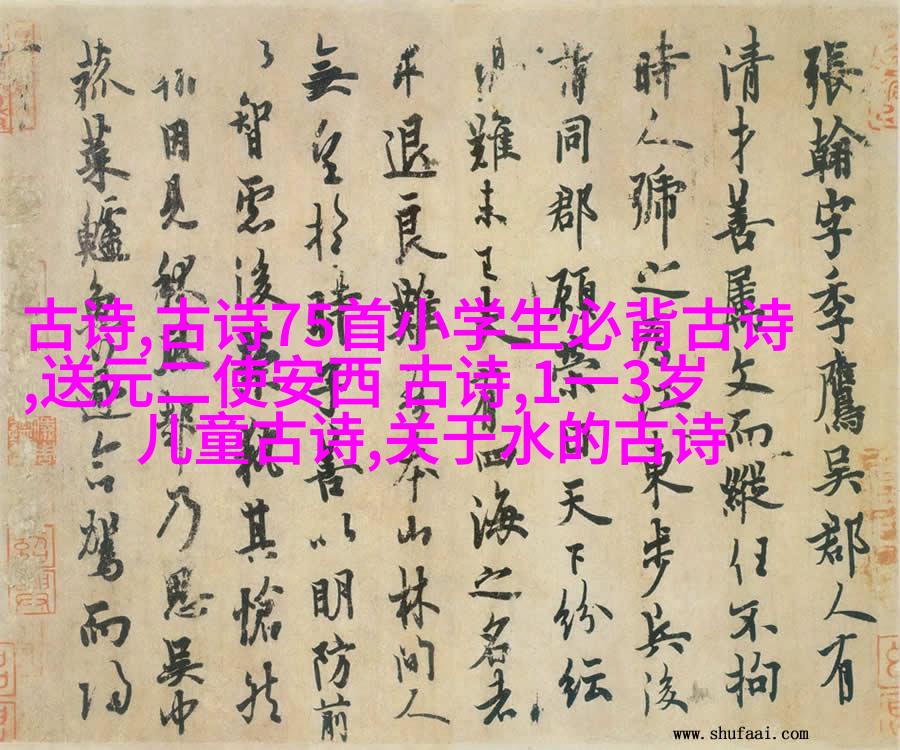 張翰字季鷹吳郡人有
清才善属文而縱任不拘
時人號之為江東步兵後
同郡顧榮曰天下紛紜
難未已夫有四海之名者
求退良難吾本山林間人
無望於時子善以明防前
以智慮後榮執其愴然
翰因見秋風起乃思吳中
菰菜鱸魚遂命駕而歸
古诗,古诗75首小学生必背古诗
,送元二使安西 古诗,1一3岁
儿童古诗,关于水的古诗
www.shufaai.com